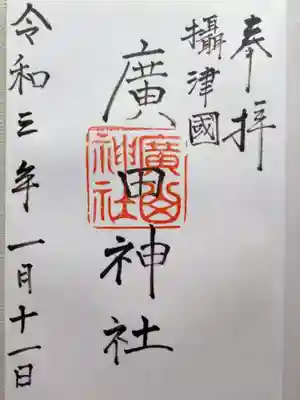 奉拝
攝津國
廣田神社
廣田神社
令和三年一月十一日